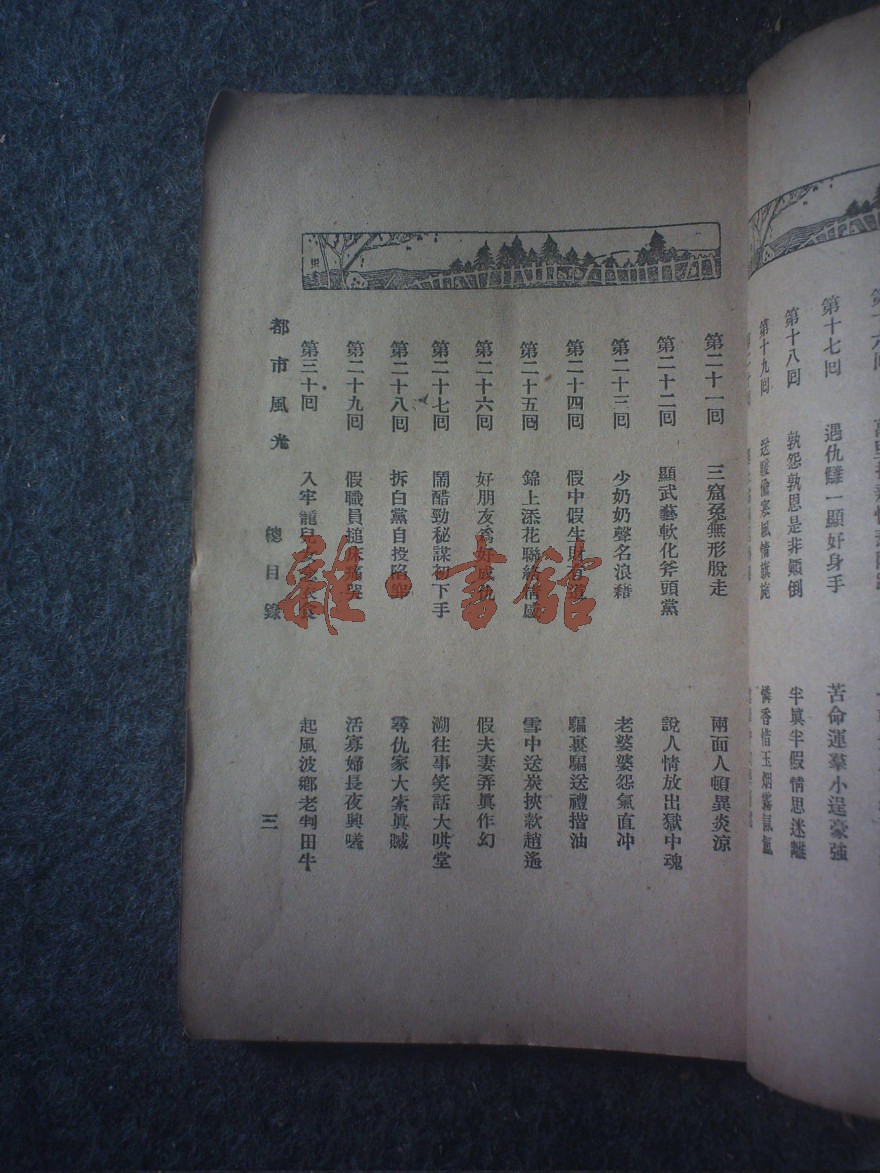 第十七回 遇仇讎一顯好身手 苦命運羣小逞豪強
第十八回 孰怨孰恩是非顛倒 半眞半假情思迷離
第十九回 送暖偷寒風情旖旎 憐香惜玉烟霧氤氳
第二十一回 三窟兔無形脫走 兩面人頓異炎涼
第二十二回 顯武藝軟化斧頭黨 說人情放出獄中魂
第二十三回 少奶奶聲名浪藉 老婆婆怨氣直冲
第二十四回 假中假生財有道 騙裏騙送禮揩油
第二十五回 錦上添花聯絡情感 雪中送炭挾款趙遙
第二十六回 好朋友爲好成仇 假夫妻弄眞作幻
第二十七回 鬧醋勁秘謀初下手 溯往事笑話大哄堂
第二十八回 拆白黨自投陷穽 尋仇家大索眞贓
第二十九回 假職員搥床痛哭 活寡婦長夜興嗟
第三十回 入牢籠兒 起風波鄉老判田牛
都市風光 總目錄 三
雜·書館